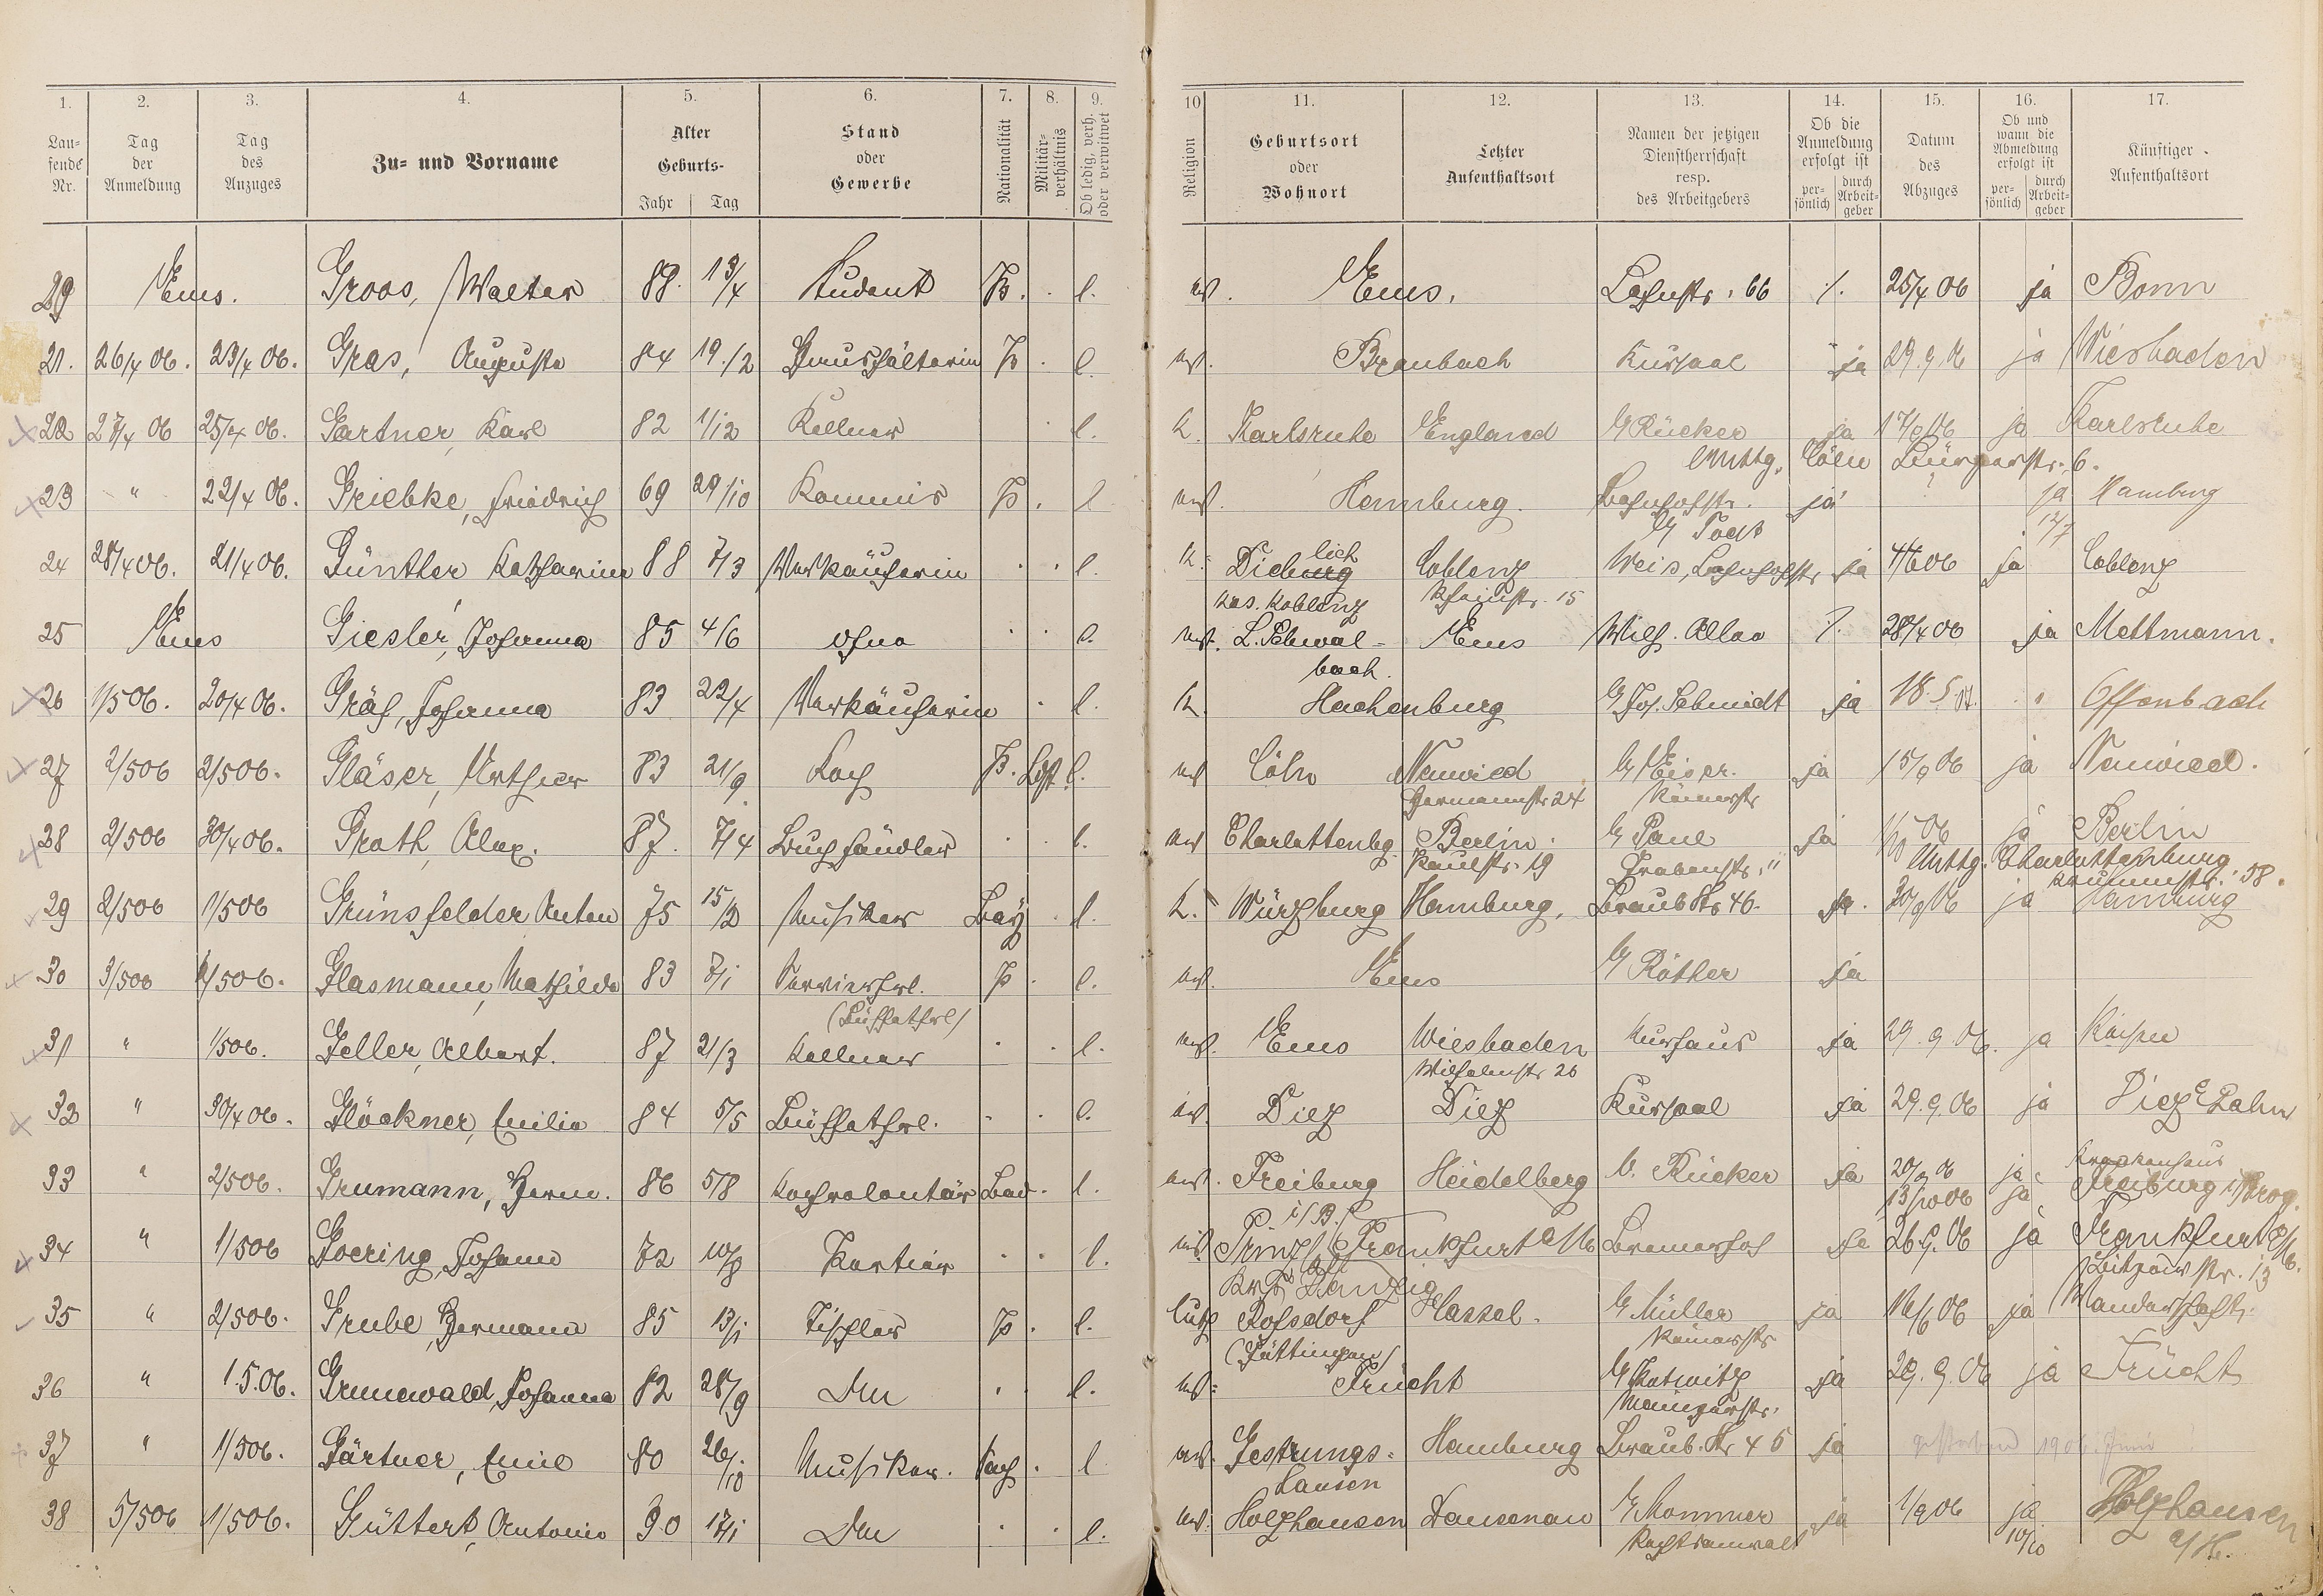 1. 2. 3. 4. 5. 6. 7. 8. 9. 10 11. 12. 13. 14. 15. 16. 17.
Laufende Nr. Tag der Anmeldung Tag des Anzuges Zu- und Vorname Alter Geburts- Jahr Tag Stand oder Gewerbe Nationalität Militärverhältnis Ob ledig, verh. oder verwitwet Religion Geburtsort oder Wohnort Letzter Aufenthaltsort Namen der jetzigen Dienstherrschaft resp. des Arbeitgebers Ob die Anmeldung erfolgt ist persönlich durch Arbeitgeber Datum des Abzuges Ob und wann die Abmeldung erfolgt ist persönlich durch Arbeitgeber Künftiger Aufenthaltsort
29 Ems. Groos, Walter 88. 13/4 Student P. l. ev. Ems. Lahnstr. 66 /. 25/4 06 ja Bonn
21. 26/4 06. 23/4 06. Gras, Auguste 84 19./2 Haushälterin P. l. ev. Braubach Kursaal ja 29.9.06 ja Wiesbaden
22 27/4 06 25/4 06. Gartner, Karl 82 1/12 Kellner l. k. Karlsruhe England G Rücker ja 17/9 06 ja Karlsruhe
Cöln 6.
23 " 22/4 06. Griebke, Friedrich 69 29/10 Kommis P. l ev. Hamburg. Bahnhofstr. ja ja Hamburg
G Todt 12/7
24 28/4 06. 21/4 06. Günther Katharina 88 7/3 Verkäuferin l. k. Dieburg lich Coblenz Weis, Bahnhofstr ja 4/6 06 ja Coblenz
Krs. Koblenz Rheinstr. 15
25 Ems Giesler, Johanna 85 4/6 ohne l. ev. L. Schwal- Ems Wilh. Allee /. 28/4 06 ja Mettmann.
bach.
26 1/5 06. 20/4 06. Gräf, Johanna 83 22/4 Verkäuferin l. k. Hachenburg G Jos. Schmidt ja 18.5. " Offenbach
27 2/5 06 2/5 06. Gläser, Arthur 83 21/9 Koch P. l. ev Cöln Neuwied G Eiser. ja 15/9 06 ja Neuwied.
Hermannstr 24 Römerstr
28 2/5 06 30/4 06. Grath, Alex. 87. 7/4 Buchhändler l. ev Charlottenbg. Berlin. G Paul ja 1/10 06 ja Berlin
Paulstr. 19 Grabenstr. 11 Charlottenburg
58.
29 2/5 06 1/5 06 Grünsfelder Anton 75 15/2 Musiker Bay l. k. Würzburg Hamburg. Braub Str 46. ja. 30/9 06 ja Hamburg
30 3/5 06 1/5 06. Glasmann, Mathilde 83 7/1 Servierfrl. P. l. ev. Ems G Röther ja
(Büffetfrl)
31 " 1/5 06. Geller, Albert. 87 21/3 Kellner l. ev. Ems Wiesbaden Kurhaus ja 29.9.06. ja
Wilhelmstr 26
32 " 30/4 06. Glöckner, Emilie 84 5/5 Büffetfrl. l. ev. Diez Diez Kursaal ja 29.9.06 ja Diez Lahn
33 " 2/5 06. Grumann, Herm. 86 5/8 Kochvolontär Bad. l. ev. Freiburg Heidelberg V. Rücker ja 20/9 06 ja Krankenhaus
i/B. 13/10 06 ja Freiburg
34 " 1/5 06 Goering, Johann 72 10/8 Portier l. ev. Frankfurt a/M Bremerhof ja 26.9.06 ja Frankfurt a/M.
Danzig 13
35 " 2/5 06. Grube, Hermann 85 13/1 Tischler P. l. luth Rosdorf Kassel. G Müller ja 16/6 06 ja Wanderschaft.
(Göttingen) Römerstr
36 " 1.5.06. Grunewald, Johanna 82 28/9 l. ev. Frücht G Kutwitz ja 29.9.06 ja Frücht
Mainzerstr.
37 " 1/5 06. Gärtner, Emil 80 26/10 Musiker. Sach. l ev. Jestrungs- Hamburg Braub. Str 45 ja gestorben 1906 Juni
hausen
38 5/5 06 1/5 06. Güttert, Antonie 90 17/1 l. ev. Holzhausen Dausenau G Mommer ja 1/9 06 ja Holzhausen
Rechtsanwalt 10/10 a/H.